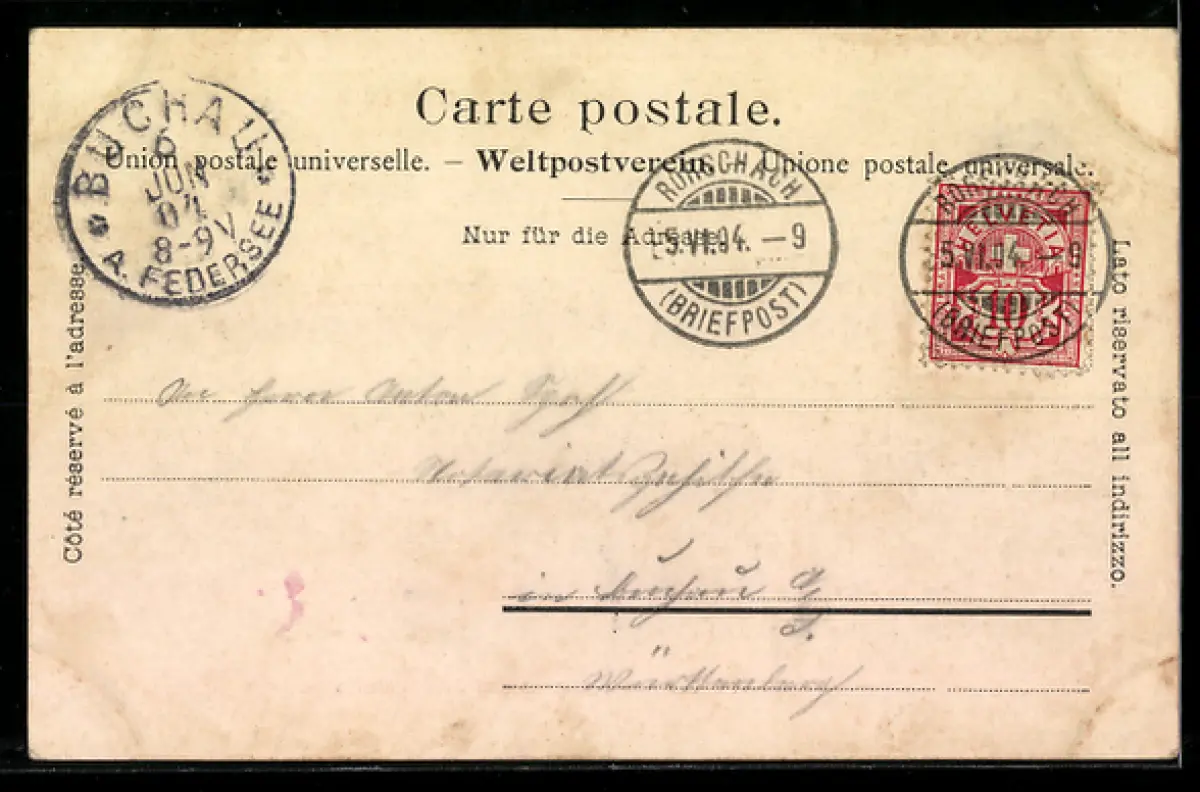 Carte postale.
Union postale universelle. – Weltpostverein. – Unione postale universale.
Nur für die Adresse.
Côté réservé à l'adresse.
Lato riservato all indirizzo.
BUCHAU
6
JUN
04
8-9V
* A. FEDERSEE *
RORSCHACH
5.VI.04. –9
(BRIEFPOST)
RORSCHACH
5.VI.04. –9
(BRIEFPOST)
HELVETIA
10
An Herrn Anton
in Buchau
Württemberg